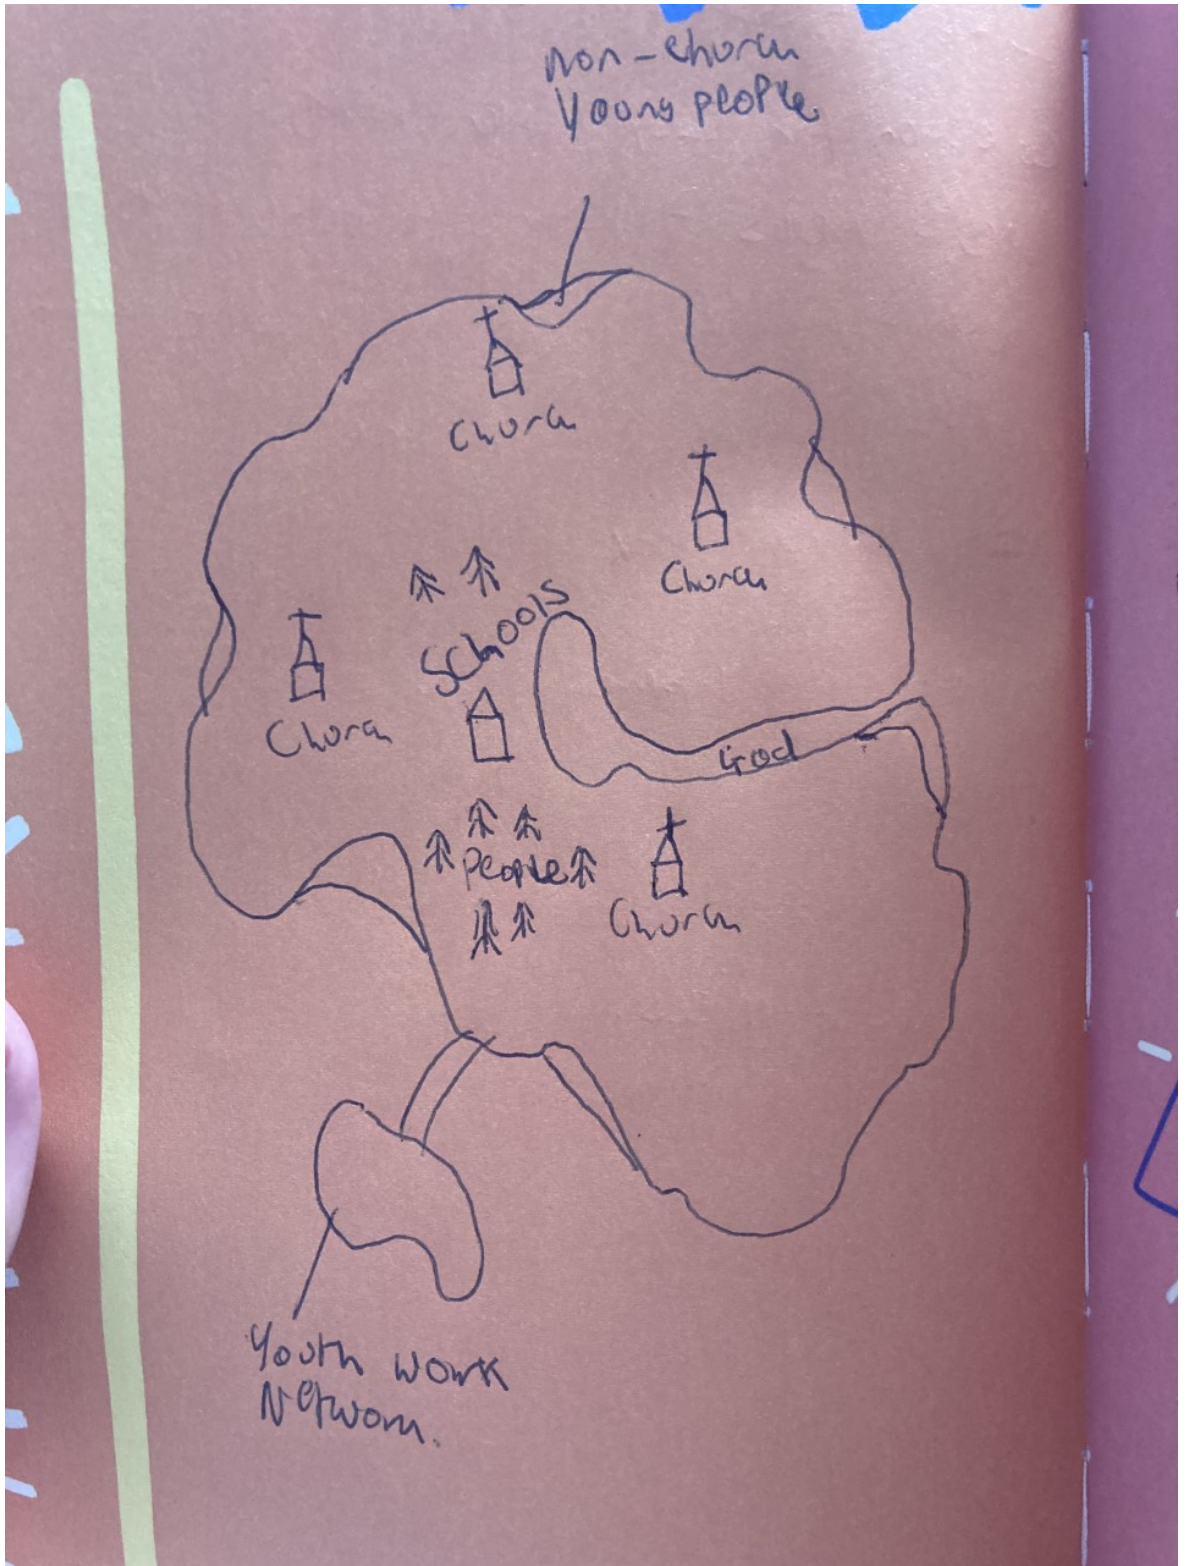 non-church
Young people
Church
Church
Schools
Church
God
People
Church
Youth work
Network.